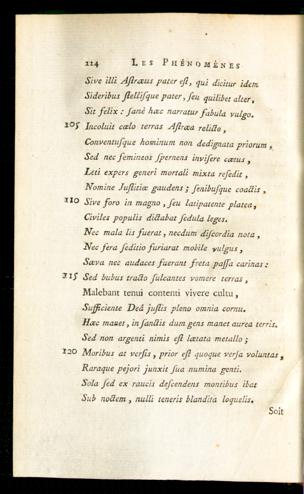 224 LES PHÉNOMÈNES
Sive illi Aſtræus pater eſt, qui dicitur idem
Sideribus ſtelliſque pater, ſeu quilibet alter,
Sit felix : ſanè hæc narratur fabula vulgo.
105 Incoluit cælo terras Aſtræa relicto,
Conventuſque hominum non dedignata priorum,
Sed nec femineos ſpernens inviſere cœtus,
Leti expers generi mortali mixta reſedit,
Nomine Juſtitiæ gaudens ; ſenibuſque coactis,
110 Sive foro in magno, ſeu latipatente platea,
Civiles populis dictabat ſedula leges.
Nec mala lis fuerat, necdum diſcordia nota,
Nec ſera ſeditio furiarat mobile vulgus,
Sæva nec audaces fuerant freta paſſa carinas :
215 Sed bubus tracto ſulcantes vomere terras,
Malebant tenui contenti vivere cultu,
Sufficiente Deâ juſtis pleno omnia cornu.
Hæc manet, in ſanctis dum gens manet aurea terris.
Sed non argenti nimis eſt lætata metallo ;
120 Moribus at verſis, prior eſt quoque verſa voluntas,
Raraque pejori junxit ſua numina genti.
Sola ſed ex raucis deſcendens montibus ibat
Sub noctem, nulli teneris blandita loquelis.
Soit